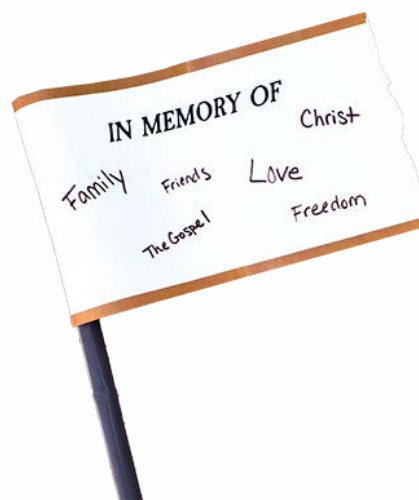 IN MEMORY OF
Christ
Family
Friends
Love
The Gospel
Freedom